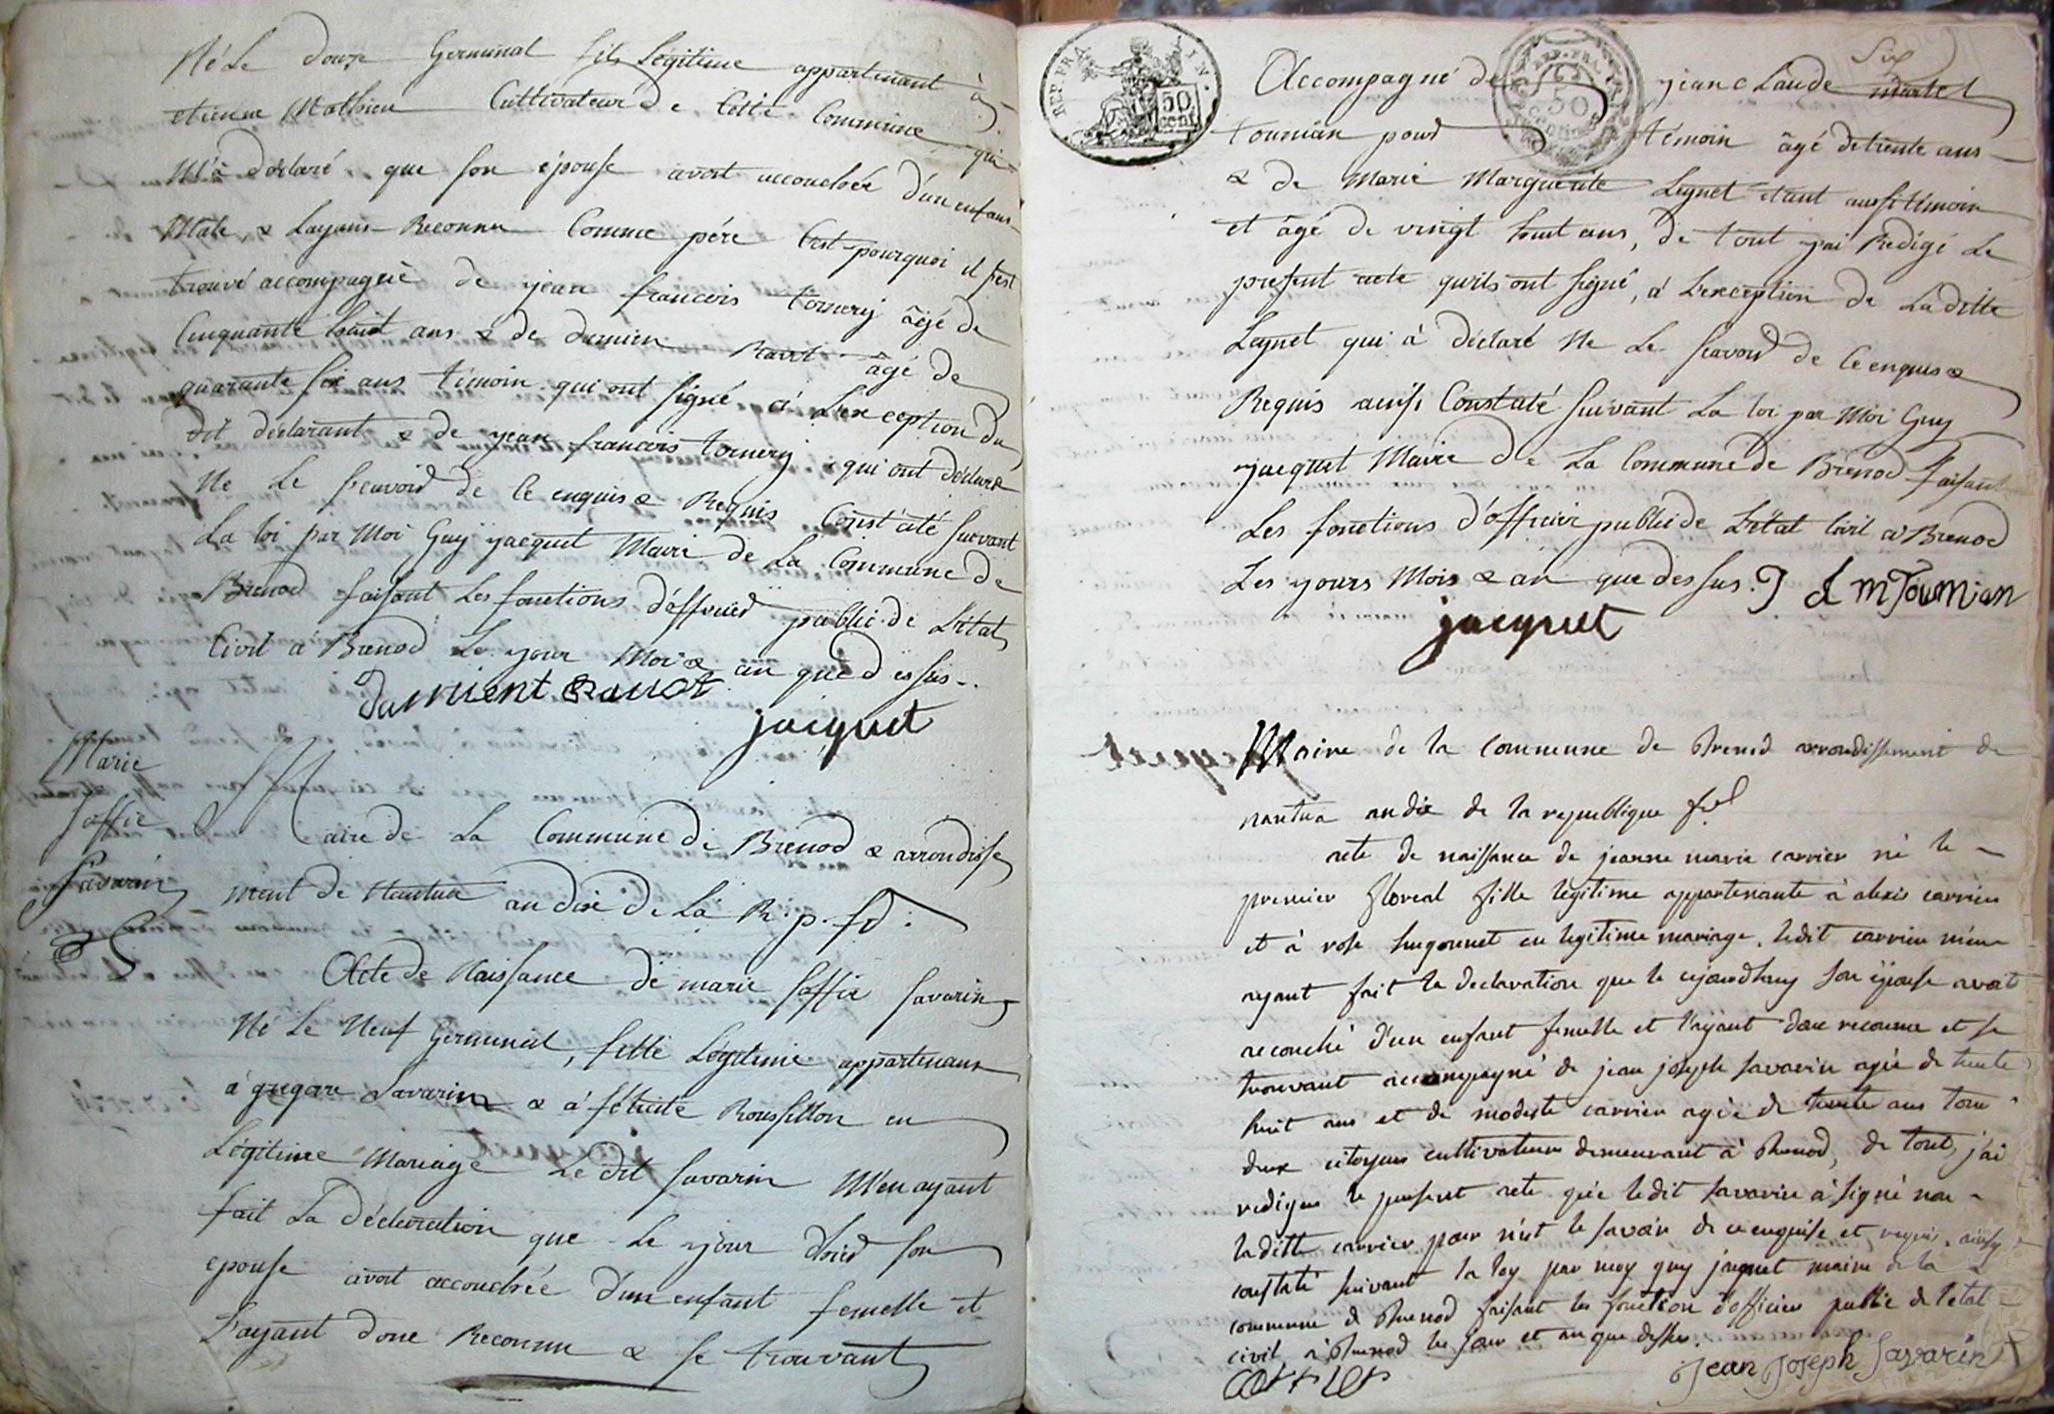 Né Le douze Germinal fils Légitime appartenant à
etienne Mathieu Cultivateur de Cette Commune qui
M'a déclaré que son épouse avoit accouchée d'un enfans
Male & Layans Reconnu Comme pére C'est pourquoi il s'est
trouvé accompagné de jean francois tornery âgé de
Cinquante huit ans & de damien Ravot âgé de
quarante six ans témoin qui ont signé à L'exception du
dit déclarant & de jean francois tornery qui ont déclaré
Ne Le scavoir de Ce enquis & Requis Constaté suivant
La loi par Moi Guy jacquet Maire de La Commune de
Brenod faisant Les fonctions d'officier public de L'état
Civil à Brenod Le jour Moi & an que dessus.
damient Ravot
jacquet
Marie
soffie
Savarin
Maire de La Commune de Brenod & arrondisse
ment de Nantua an dix de La R. p. fs :
Acte de Naissance de marie soffie savarin
Né Le Neuf Germinal, fille Légitime appartenans
à gregoire Savarin & à félicité Roussillon en
Légitime Mariage Le dit savarin M'en ayant
fait La déclaration que Le jour d'hier son
epouse avoit accouchée d'un enfant femelle et
L'ayant donc Reconnu & se trouvant
REP. FRA.
50 cent
REP. FRA.
50
Six
Accompagné de jean Claude martel
tournian pour témoin âgé de trente ans
& de Marie Marguerite Leynet etant aussi témoin
et âgé de vingt huit ans, de tout j'ai Rédigé Le
present acte qu'ils ont signé, à L'exception de La ditte
Leynet qui à déclaré Ne Le scavoir de Ce enquis &
Requis ainsi Constaté suivant La loi par Moi Guy
jacquet Maire De La Commune de Brenod faisant
Les fonctions d'officier public de L'état Civil à Brenod
Les jours Mois & an que dessus.
jacquet
Maire de la commune de Brenod arrondissement de
nantua an dix de la republique
acte de naissance de jeanne marie carrier né le
premier floreal fille legitime appartenante à alexis carrier
et à rose hugonnet en legitime mariage, ledit carrier m'en
ayant fait la declaration que le cejourdhuy son epouse avoit
acouché d'un enfant femelle et l'ayant donc reconnu et se
trouvant accompagné de jean joseph savarin agée de trente
huit ans et de modeste carrier agée de trente ans tous
deux citoyens cultivateurs demeurant à Brenod, de tout j'ai
redigée le present acte que ledit savarin à signé non
laditte carrier pour n'est le savoir de ce enquise et requis, ainsy
constaté suivant la loy par moy guy jaquet maire de la
commune de Brenod faisant les fonction d'officier public de l'etat
civil à Brenod les jour et an que dessus.
Jean Joseph Savarin